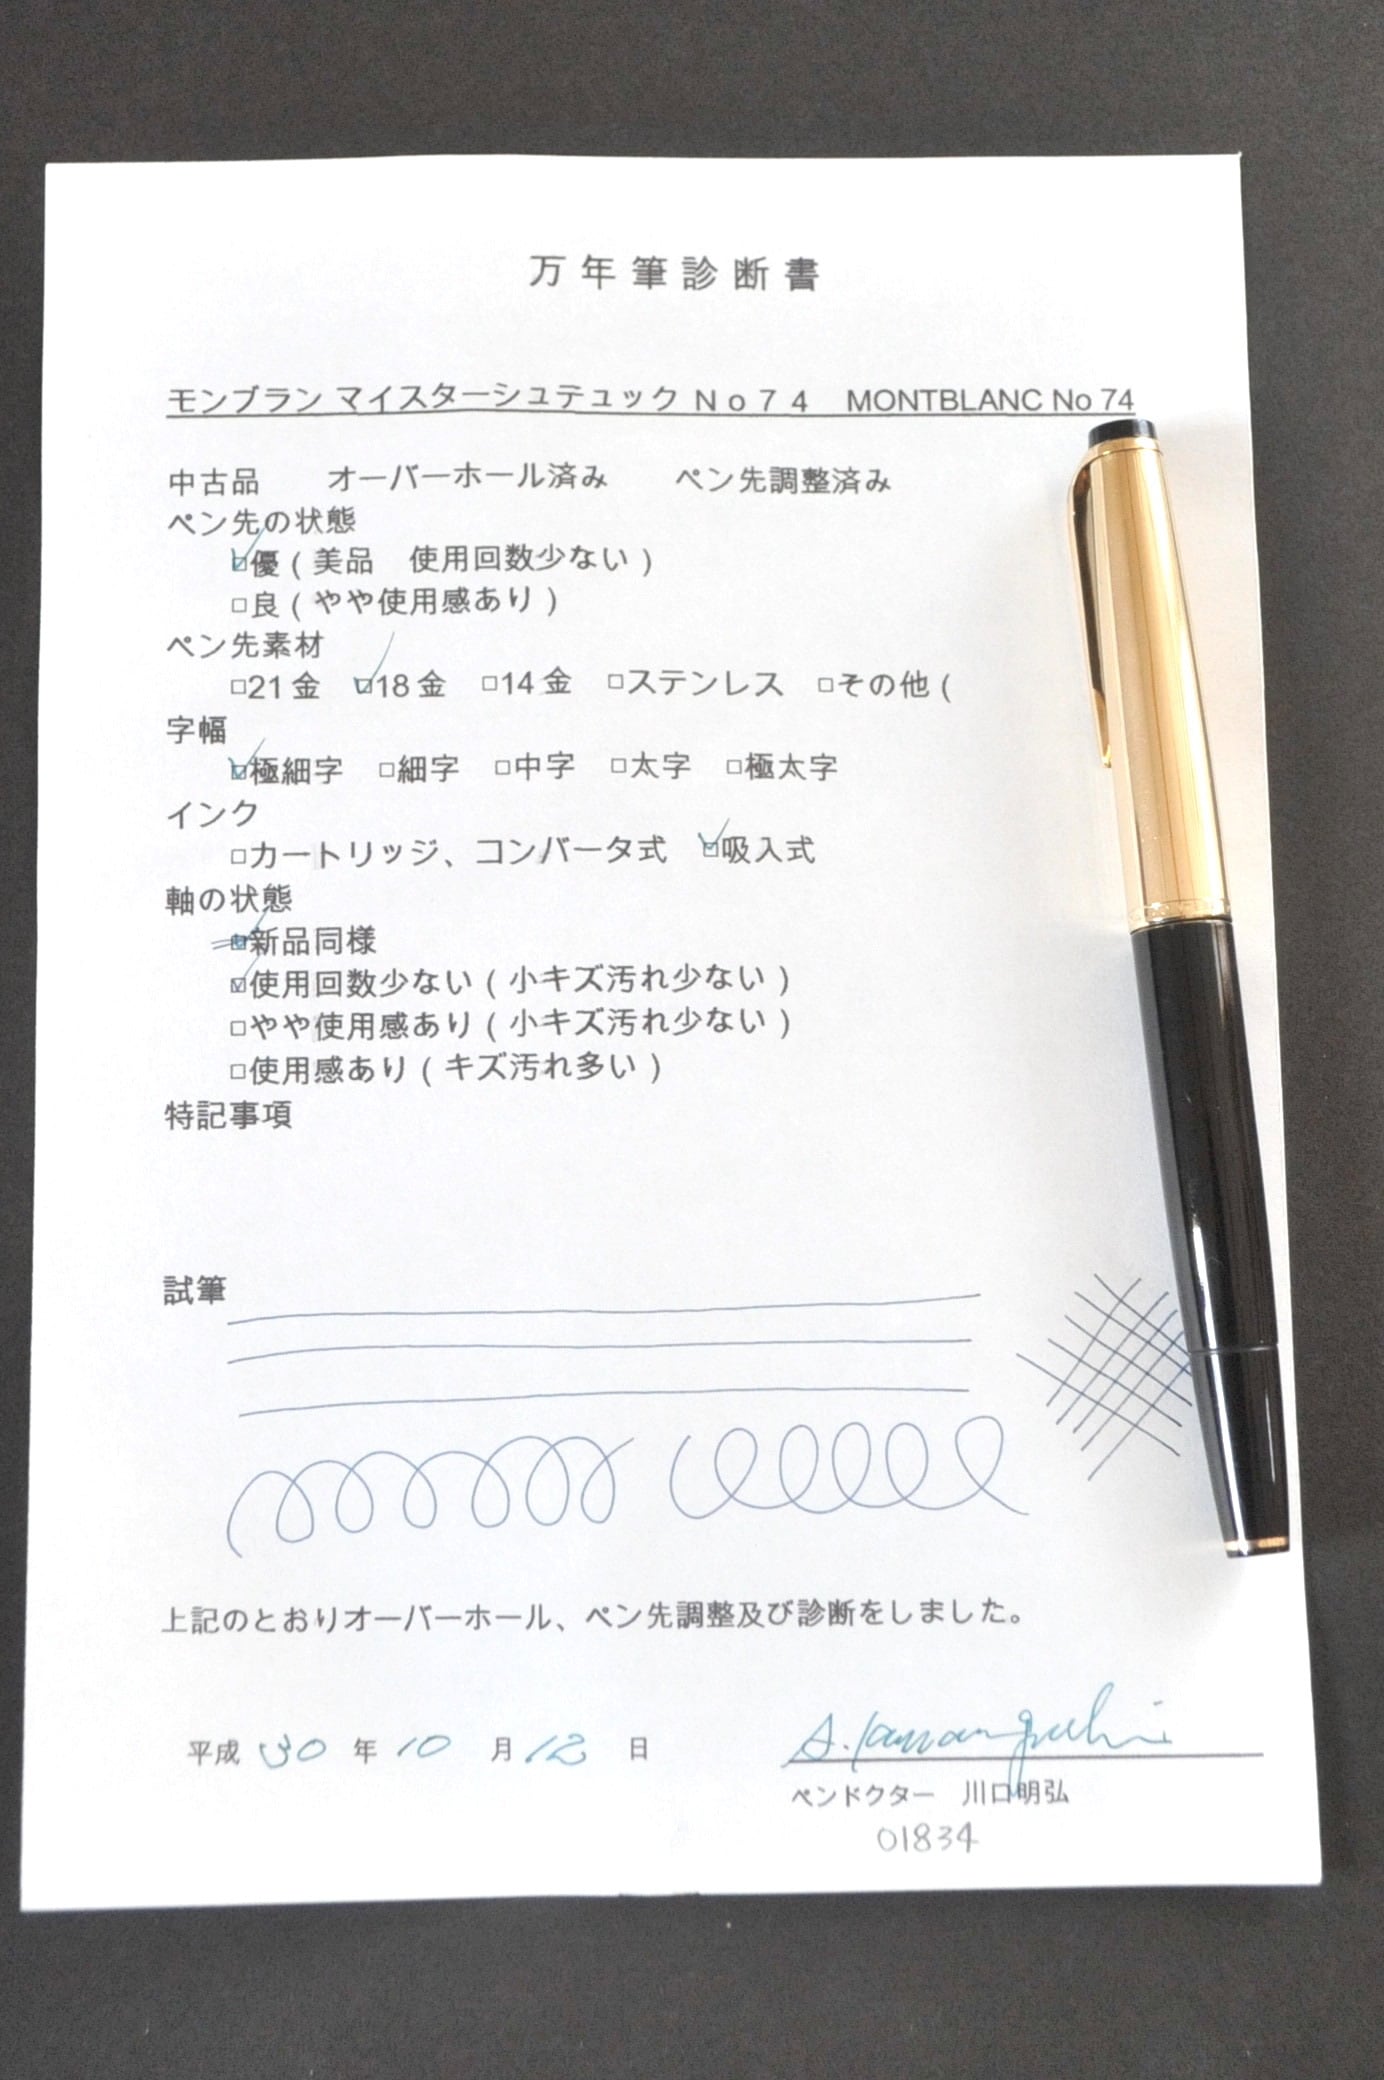 万年筆診断書
モンブラン マイスターシュテュック No74 MONTBLANC No 74
中古品 オーバーホール済み ペン先調整済み
ペン先の状態
☑優(美品 使用回数少ない)
□良(やや使用感あり)
ペン先素材
□21金 ☑18金 □14金 □ステンレス □その他(
字幅
☑極細字 □細字 □中字 □太字 □極太字
インク
□カートリッジ、コンバータ式 ☑吸入式
軸の状態
☑新品同様
☑使用回数少ない(小キズ汚れ少ない)
□やや使用感あり(小キズ汚れ少ない)
□使用感あり(キズ汚れ多い)
特記事項
試筆
上記のとおりオーバーホール、ペン先調整及び診断をしました。
平成 30 年 10 月 12 日
A. Kawaguchi
ペンドクター 川口明弘
01834